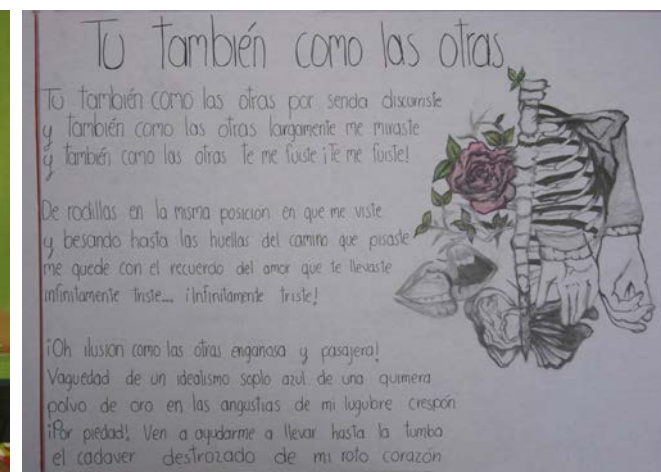 Tu también como las otras
Tu también como las otras por senda discurriste
y también como las otras largamente me miraste
y también como las otras te me fuiste ¡Te me fuiste!
De rodillas en la misma posicion en que me viste
y besando hasta las huellas del camino que pisaste
me quede con el recuerdo del amor que te llevaste
infinitamente triste... ¡Infinitamente triste!
¡Oh ilusion como las otras enganosa y pasajera!
Vaguedad de un idealismo soplo azul de una quimera
polvo de oro en las angustias de mi lugubre crespón
¡Por piedad! Ven a ayudarme a llevar hasta la tumba
el cadaver destrozado de mi roto corazón